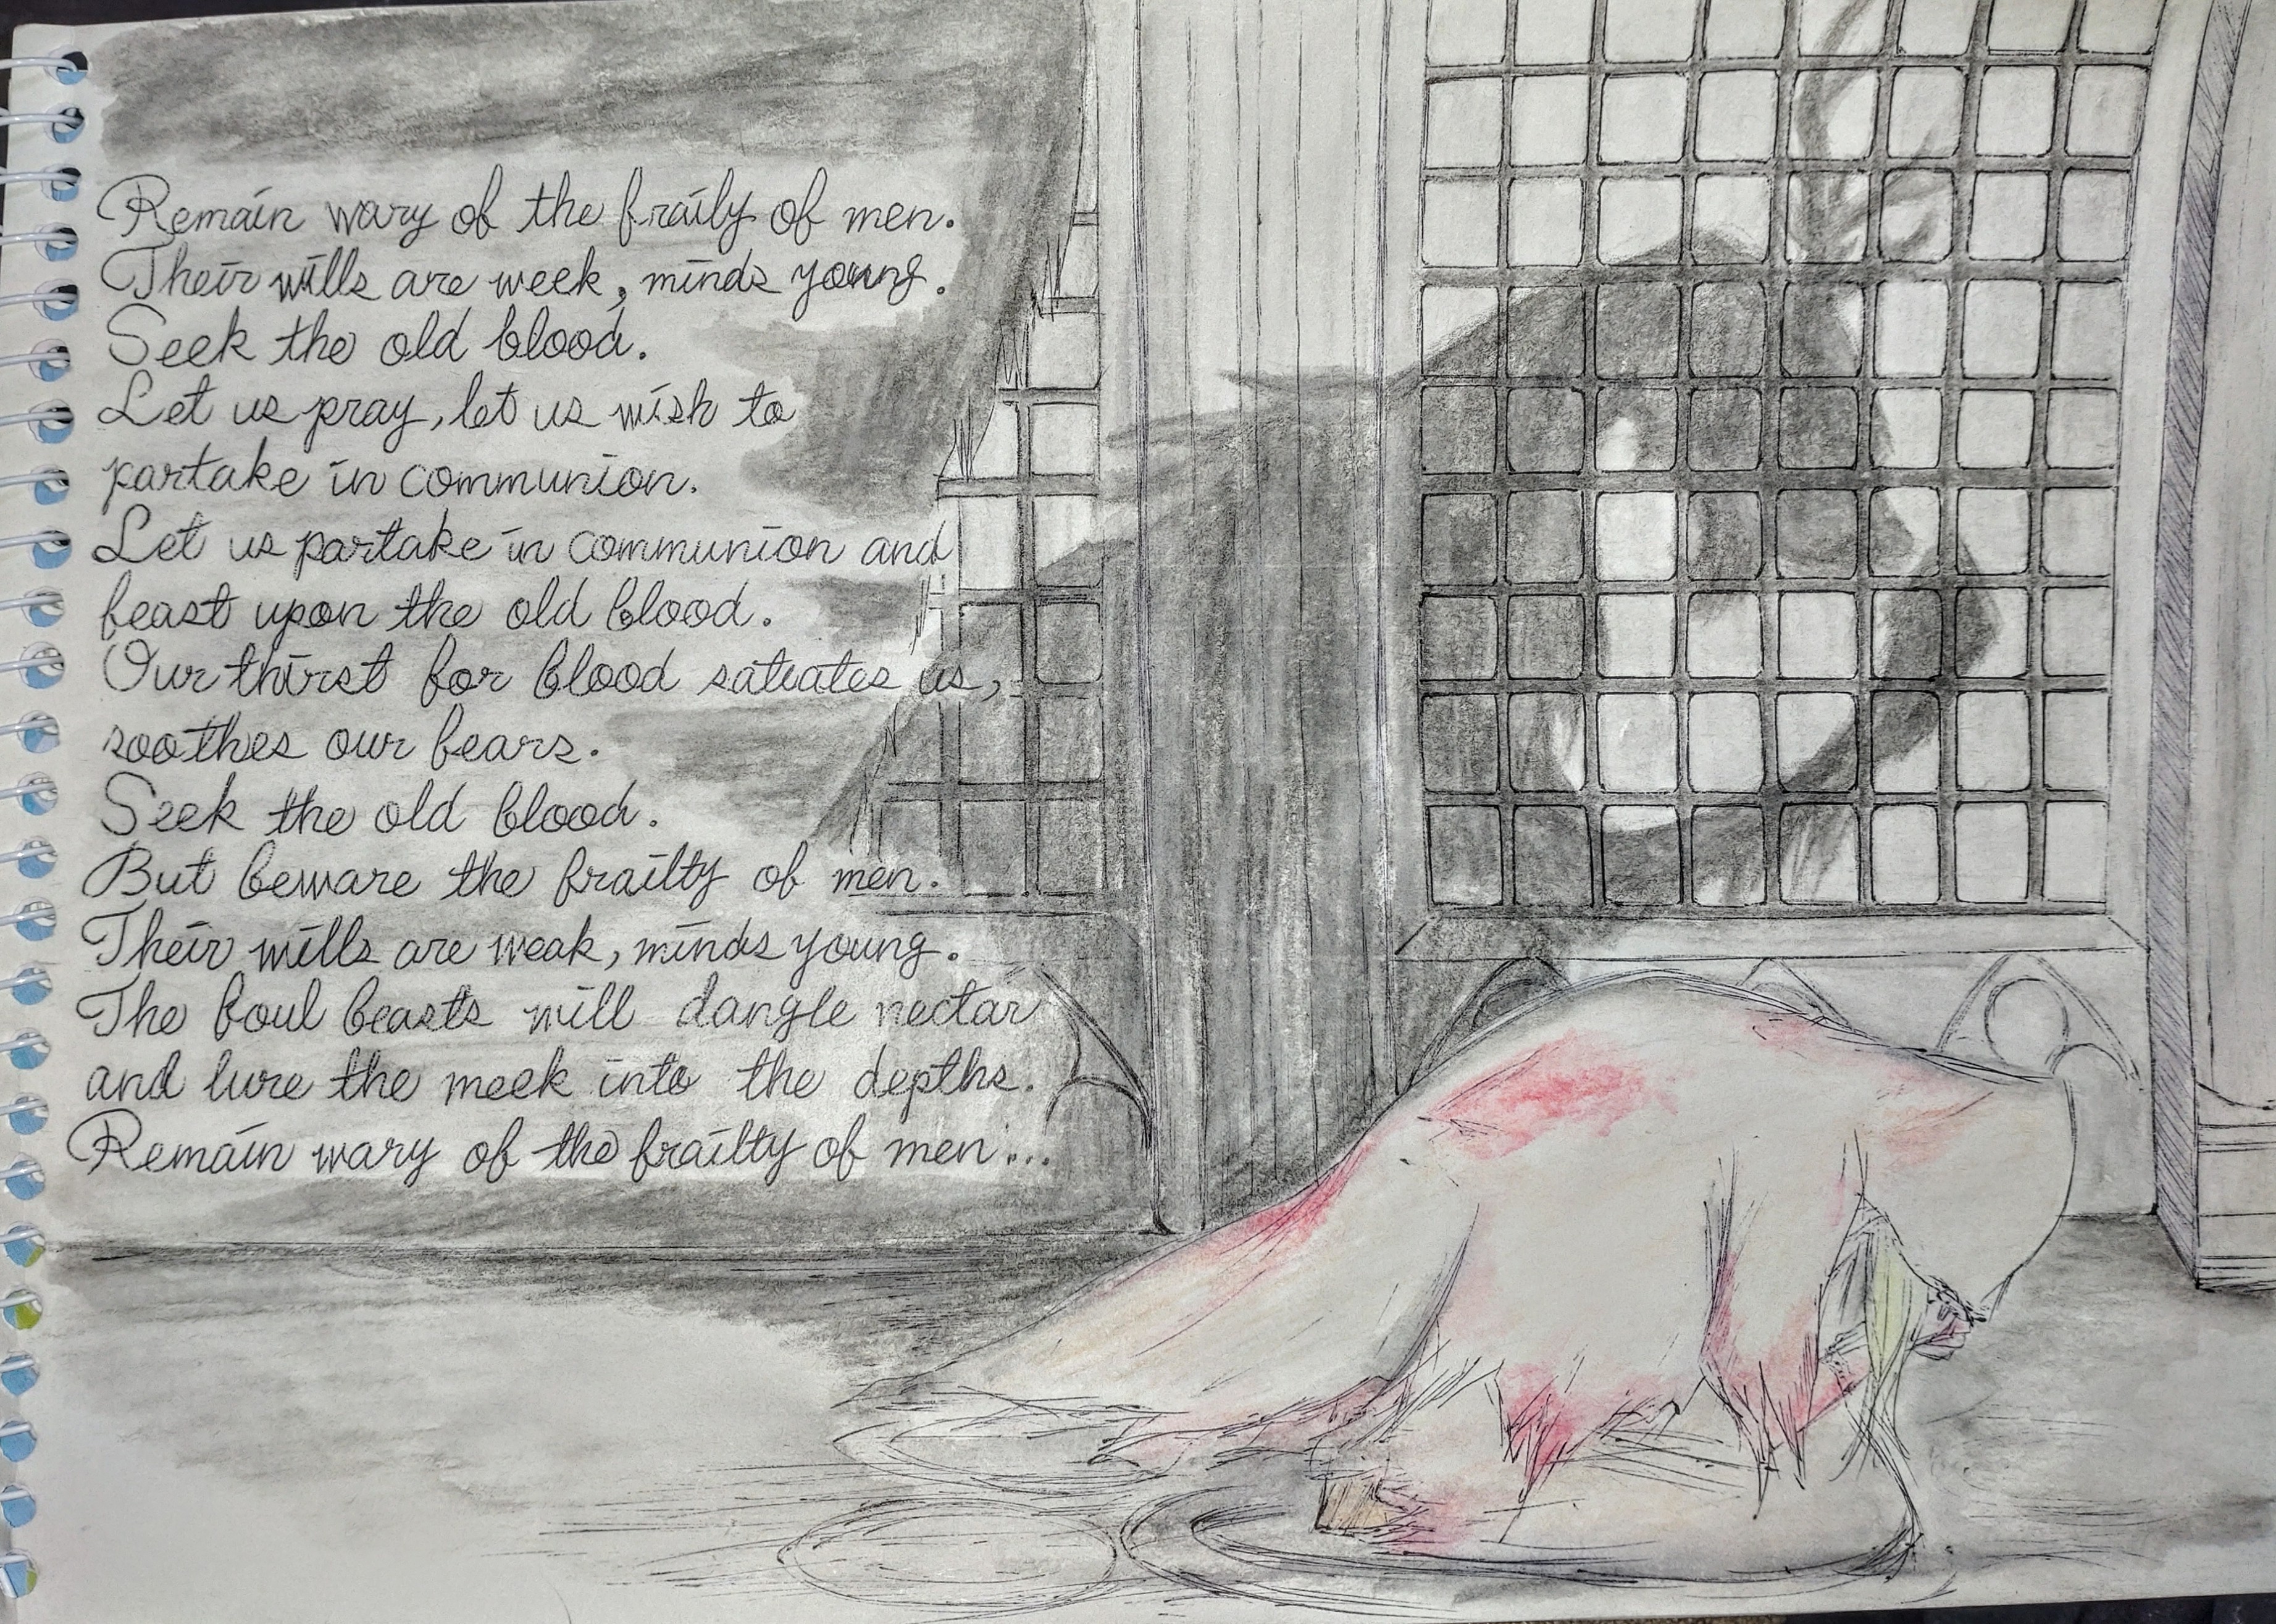 Remain wary of the fraily of men.
Their wills are week, minds young.
Seek the old blood.
Let us pray, let us wish to
partake in communion.
Let us partake in communion and
feast upon the old blood.
Our thirst for blood satiates us,
soothes our fears.
Seek the old blood.
But beware the frailty of men.
Their wills are weak, minds young.
The foul beasts will dangle nectar
and lure the meek into the depths.
Remain wary of the frailty of men...